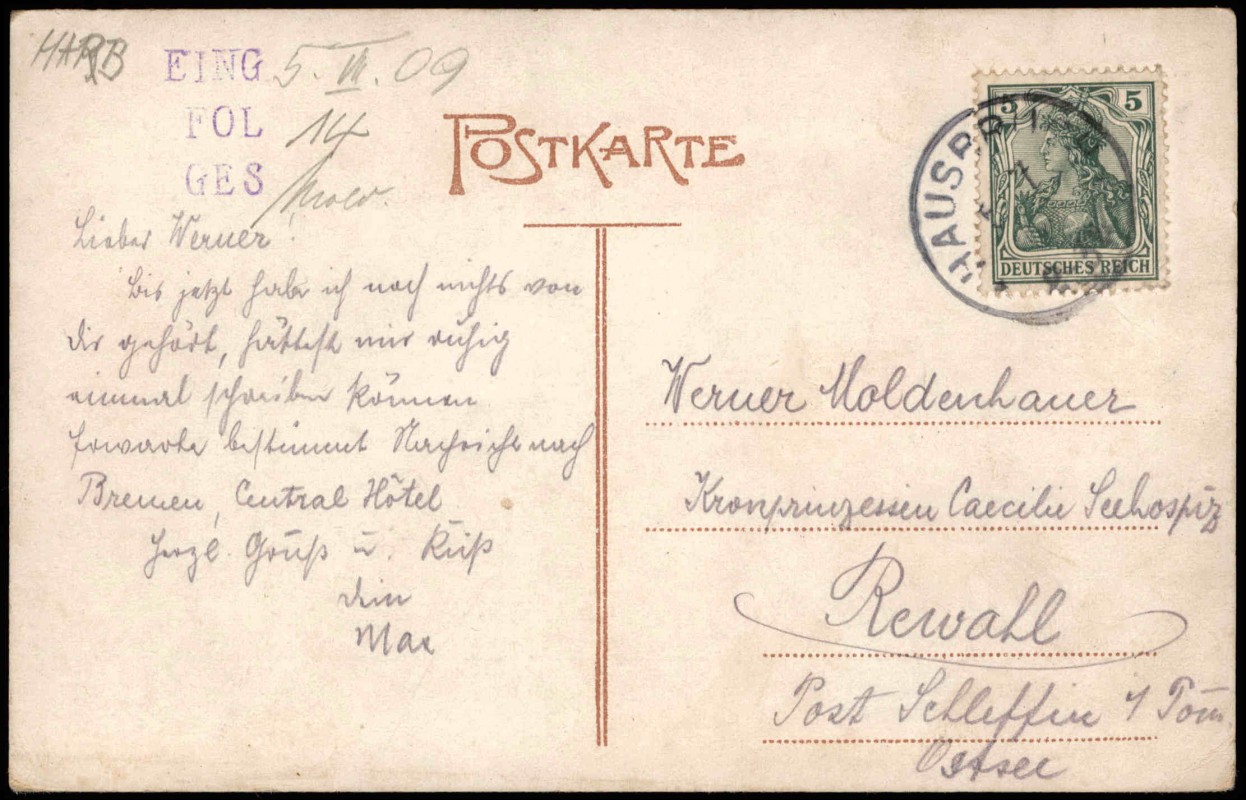 HARB
EING 5. VII. 09
FOL 14
GES
POSTKARTE
5 5
DEUTSCHES REICH
HAUSBRUCH
Lieber Werner!
Bis jetzt habe ich noch nichts von
Dir gehört, hättest mir ruhig
einmal schreiben können
Erwarte bestimmt Nachricht nach
Bremen, Central Hôtel
Herzl. Gruß u. Kuß
Dein
Max
Werner Moldenhauer
Kronprinzessin Caecilie Seehospiz
Rewahl
Post Schleffin i/ Pom
Ostsee